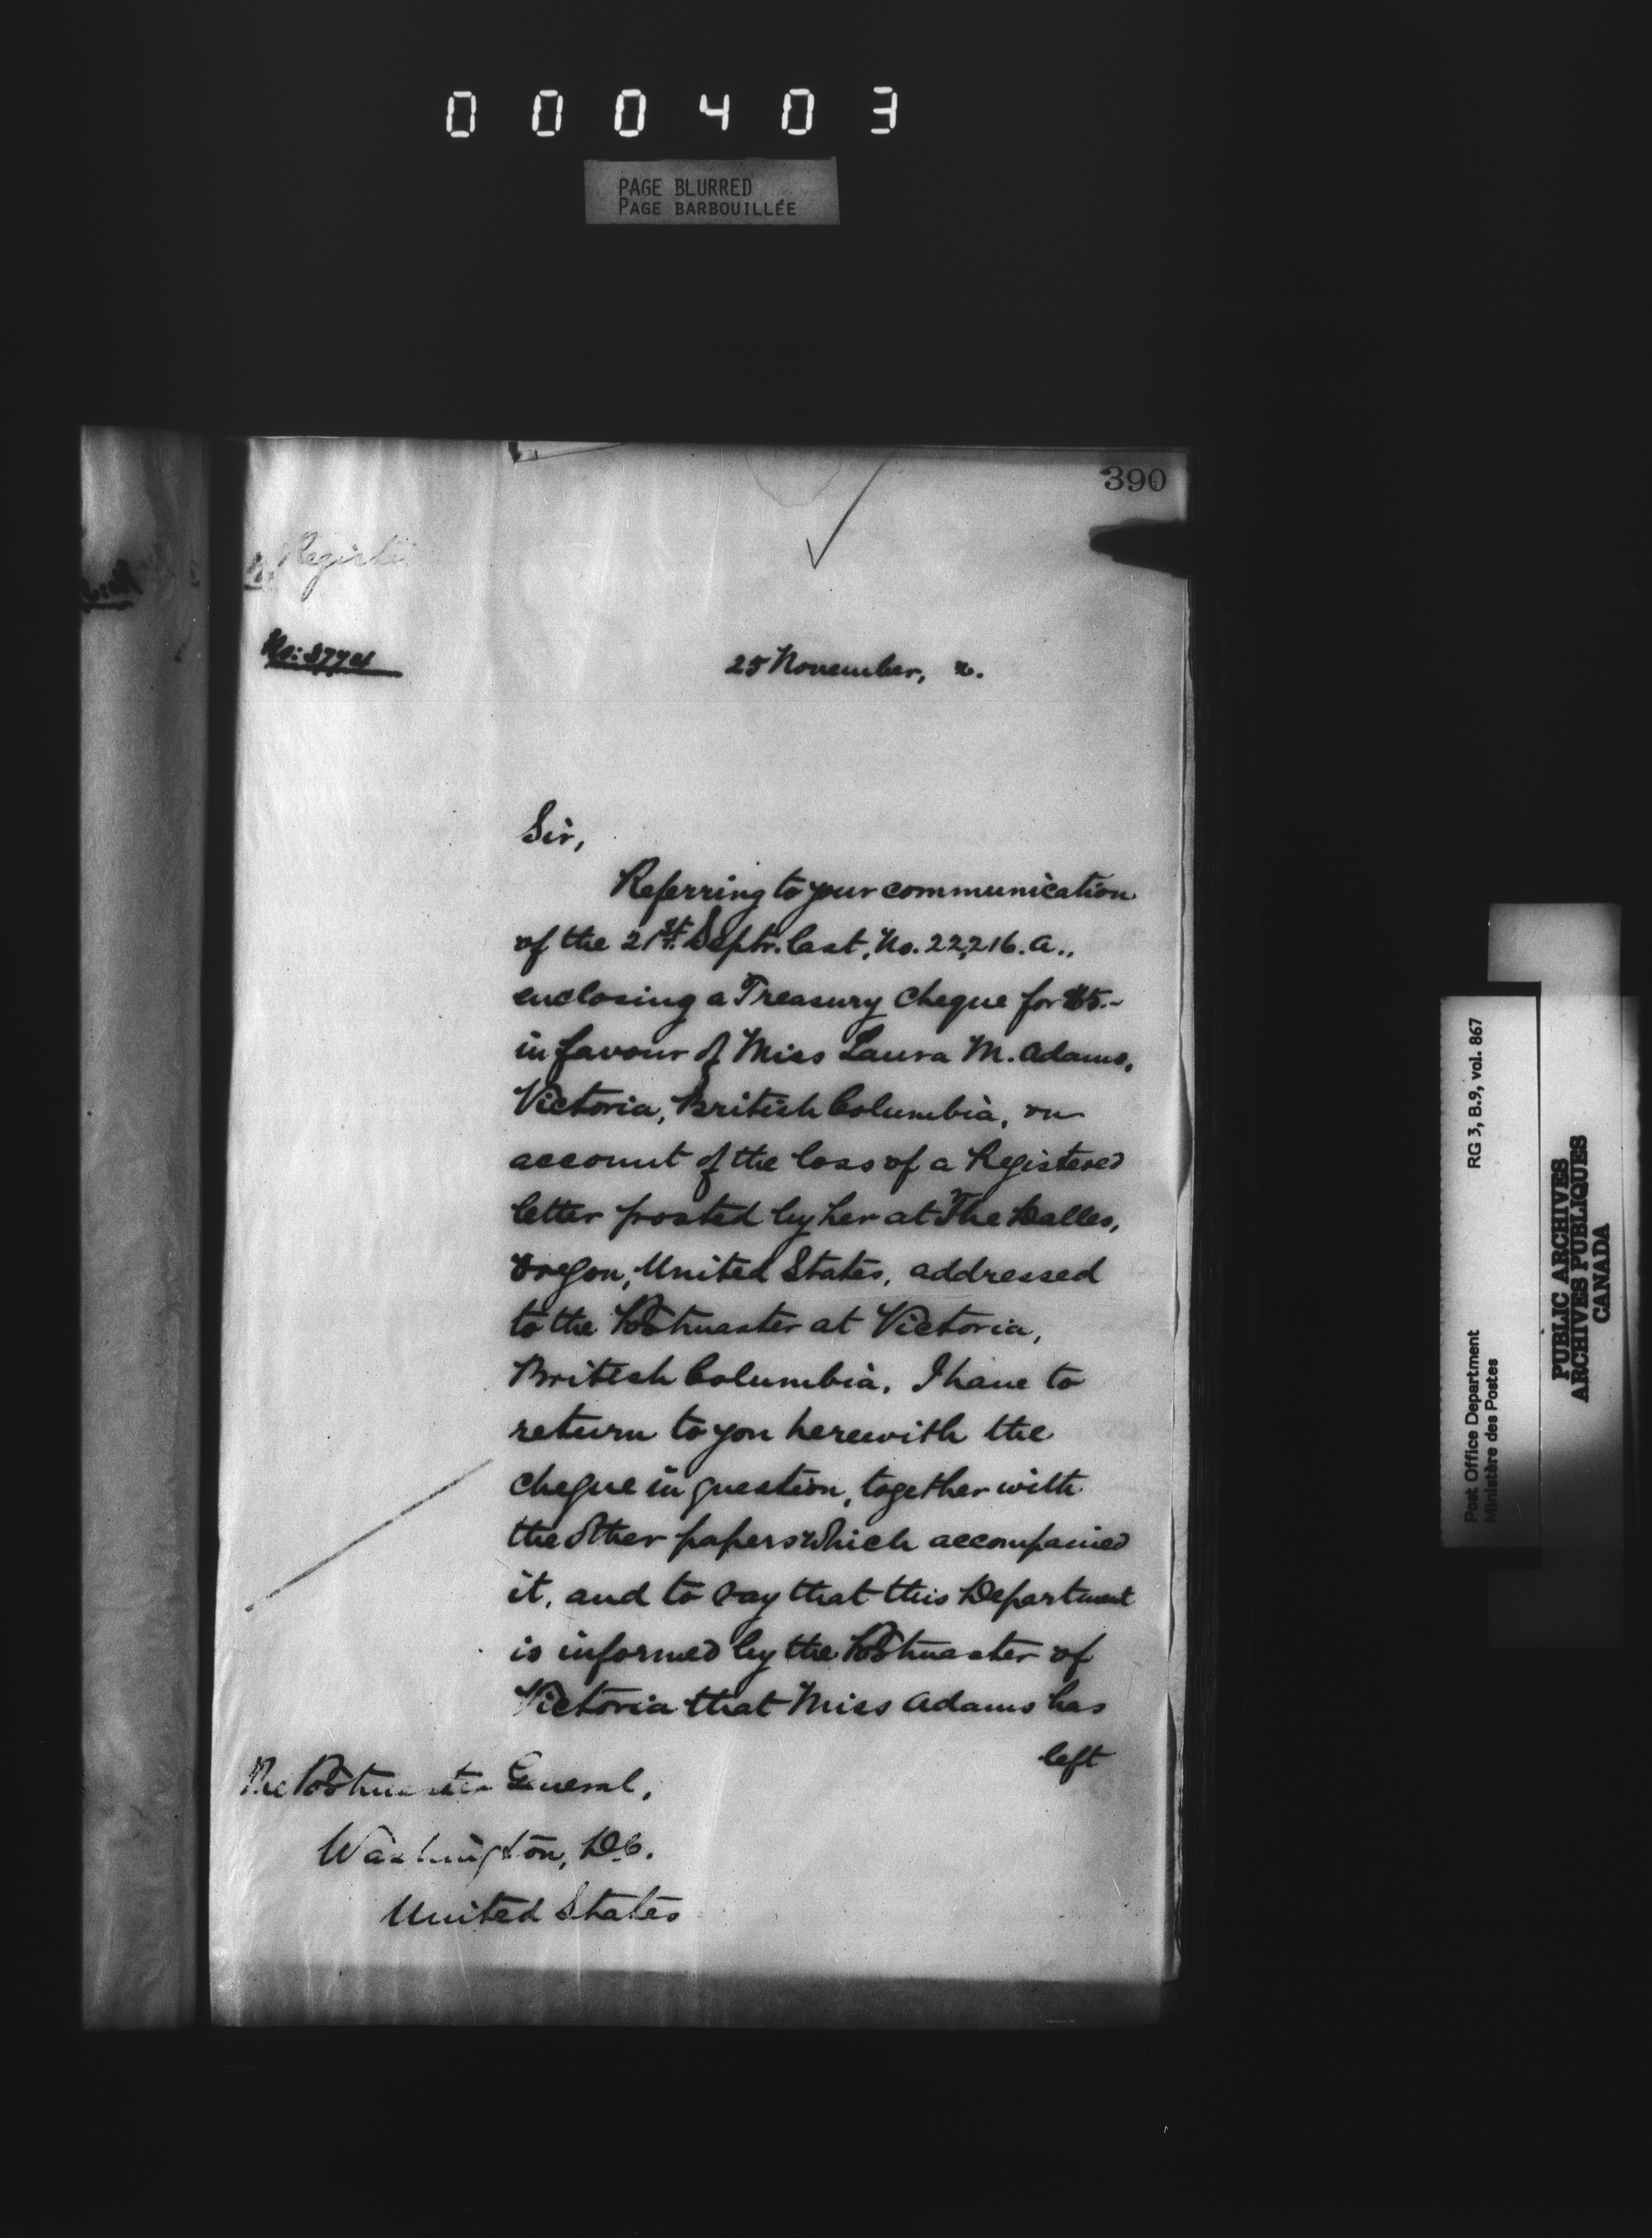 000403
PAGE BLURRED
PAGE BARBOUILLÉE
390
No: 377
25 November, 2.
Sir,
Referring to your communication
of the 21st. Septr. last, No. 22,216. A.,
enclosing a Treasury Cheque for $5.-
in favour of Miss Laura M. Adams,
Victoria, British Columbia, on
account of the loss of a Registered
letter posted by her at The Dalles,
Oregon, United States, addressed
to the Postmaster at Victoria,
British Columbia. I have to
return to you herewith the
cheque in question, together with
the other papers which accompanied
it, and to say that this Department
is informed by the Postmaster of
Victoria that Miss Adams has
left
The Postmaster General,
Washington, D.C.
United States
Post Office Department
Ministère des Postes
RG 3, B.9, vol. 867
PUBLIC ARCHIVES
ARCHIVES PUBLIQUES
CANADA